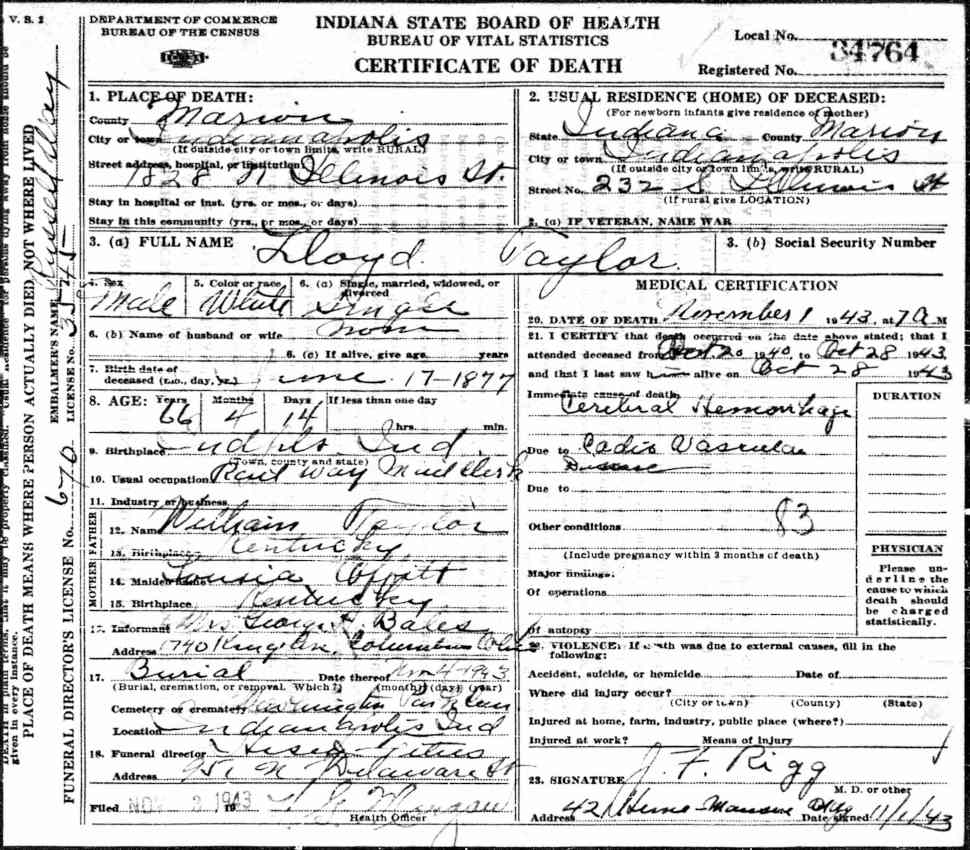 V. S. 1
DEPARTMENT OF COMMERCE
BUREAU OF THE CENSUS
INDIANA STATE BOARD OF HEALTH
BUREAU OF VITAL STATISTICS
CERTIFICATE OF DEATH
Local No.
34764
Registered No.
1. PLACE OF DEATH:
County Marion
City or town Indianapolis
(If outside city or town limits, write RURAL)
Street address, hospital, or institution
1828 N Illinois St.
Stay in hospital or inst. (yrs. or mos., or days)
Stay in this community (yrs., or mos., or days)
2. USUAL RESIDENCE (HOME) OF DECEASED:
(For newborn infants give residence of mother)
State Indiana County Marion
City or town Indianapolis
(If outside city or town limits, write RURAL)
Street No. 232 S Illinois St
(If rural give LOCATION)
2. (a) IF VETERAN, NAME WAR
3. (a) FULL NAME Lloyd Taylor.
3. (b) Social Security Number
4. Sex
Male
5. Color or race
White
6. (a) Single, married, widowed, or divorced
Single
6. (b) Name of husband or wife none
6. (c) If alive, give age years
7. Birth date of
deceased (mo., day, yr.) June 17-1877
8. AGE: Years Months Days If less than one day
66 4 14 hrs. min.
9. Birthplace Indpls Ind
(Town, county and state)
10. Usual occupation Rail Way Mail Clerk
11. Industry or business
FATHER
12. Name William Taylor
13. Birthplace Kentucky
MOTHER
14. Maiden name
15. Birthplace Kentucky
Informant Mrs George Bales
Address 740 Columbus Ohio
17. Burial Date thereof Nov 4 1943
(Burial, cremation, or removal. Which?) (month) (day) (year)
Cemetery or crematory Washington Park Cem
Location Indianapolis Ind
18. Funeral director Hisey Titus
Address 951 N Delaware St
Filed NOV 2 1943
Health Officer
MEDICAL CERTIFICATION
20. DATE OF DEATH November 1 1943, at 7 A M
21. I CERTIFY that death occurred on the date above stated; that I
attended deceased from Oct. 20 1940, to Oct 28 1943
and that I last saw him alive on Oct 28 1943
Immediate cause of death
Cerebral Hemorrhage
Due to Cadio Vascular
Disease
Due to
Other conditions
83
(Include pregnancy within 3 months of death)
Major findings:
Of operations
Of autopsy
DURATION
PHYSICIAN
Please un-
derline the
cause to which
death should
be charged
statistically.
22. VIOLENCE: If death was due to external causes, fill in the
following:
Accident, suicide, or homicide Date of
Where did injury occur?
(City or town) (County) (State)
Injured at home, farm, industry, public place (where?)
Injured at work? Means of Injury
23. SIGNATURE J. F. Rigg
M. D. or other
Address 421 Hume Mansur Bldg Date signed 11/1/43
PLACE OF DEATH MEANS WHERE PERSON ACTUALLY DIED, NOT WHERE LIVED
given in every instance.
EMBALMER'S NAME
LICENSE No. 3545
FUNERAL DIRECTOR'S LICENSE No. 670